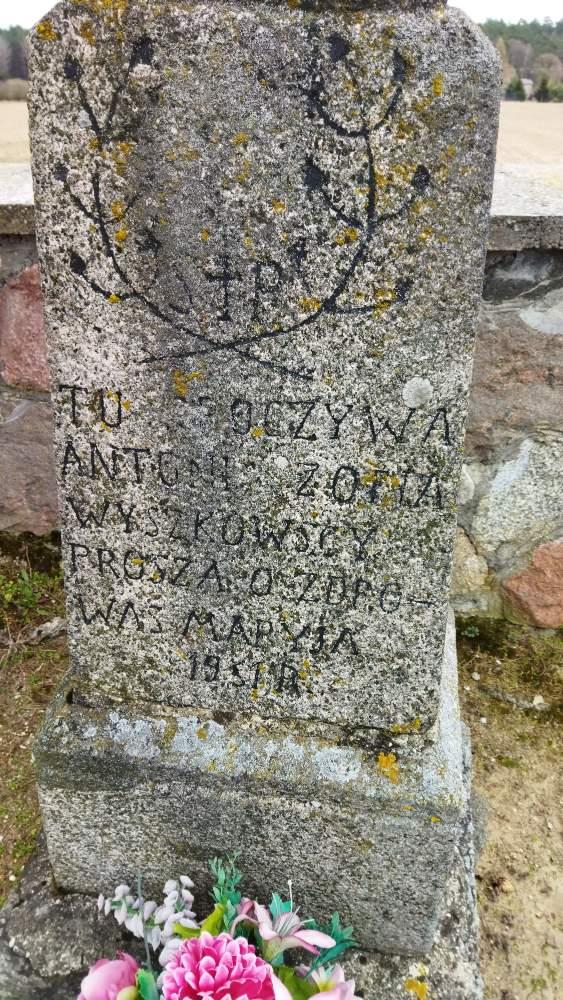 Ś † P
TU SPOCZYWA
ANTONI ZOFIA
WYSZKOWSCY
PROSZA O ZDRO-
WAŚ MARYJA
1951 R